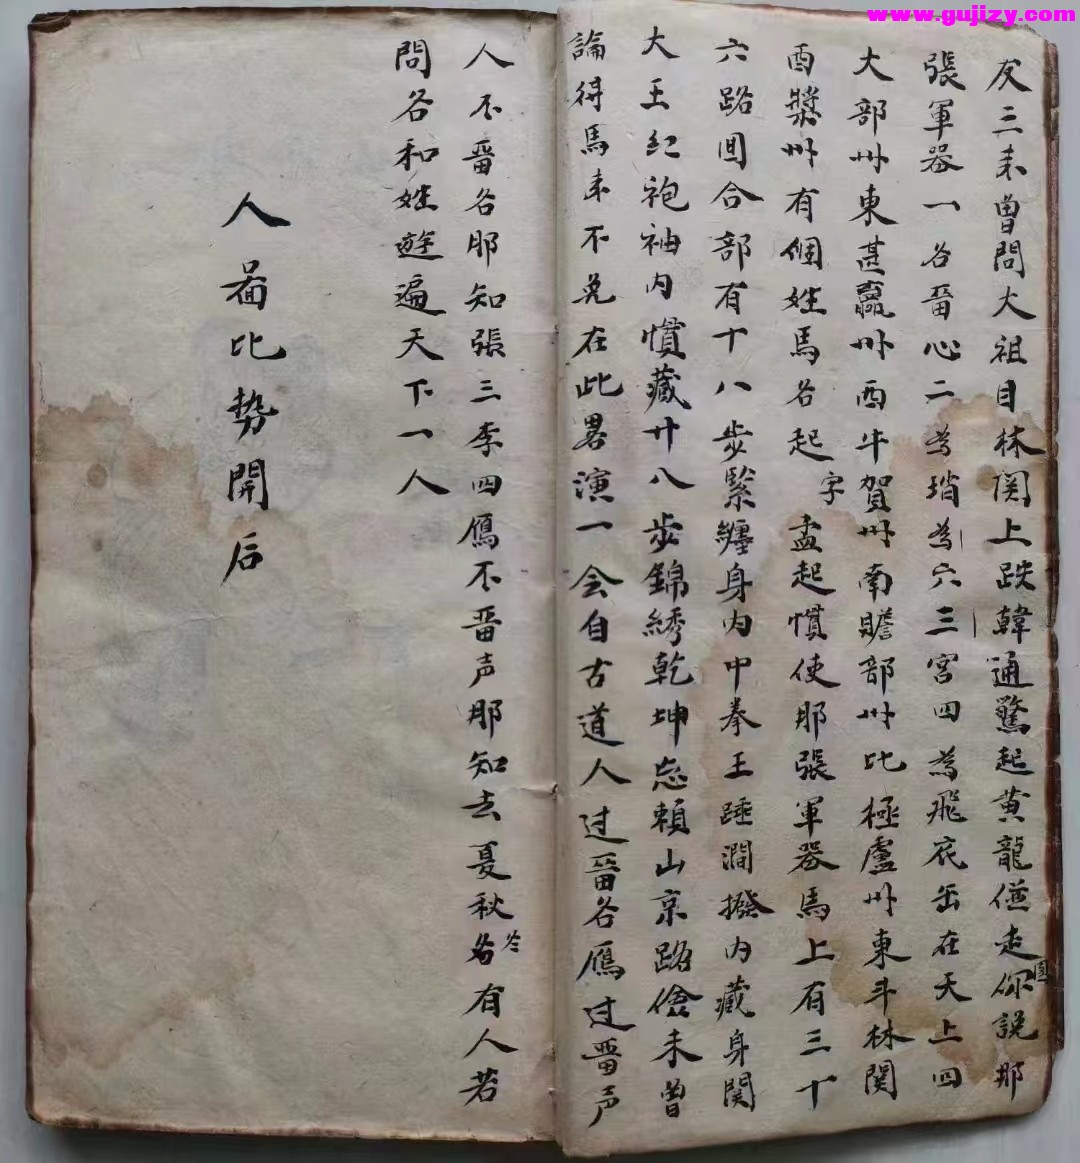 www.gujizy.com
友三未曾問大祖目林関上跌韓通驚起黄龍僅走你說那
圓
張軍器一名畨心二為琑為六三宮四為飛底缶在天上四
大部卅東甚嬴卅西牛賀卅南贍部卅比極盧卅東斗林関
酉漿卅有個姓馬名起字孟起慣使那張軍器馬上有三十
六路囬合部有十八步緊纏身内中拳王踵澗撥内藏身関
大王紅袍袖内慣藏廿八步錦綉乾坤忘賴山京路傖未曾
論得馬未不免在此畧演一会自古道人过畱名鴈过畱声
人不畱名那知張三李四鴈不畱声那知去夏秋冬名有人若
問名和姓遊遍天下一人
人啚比势開后